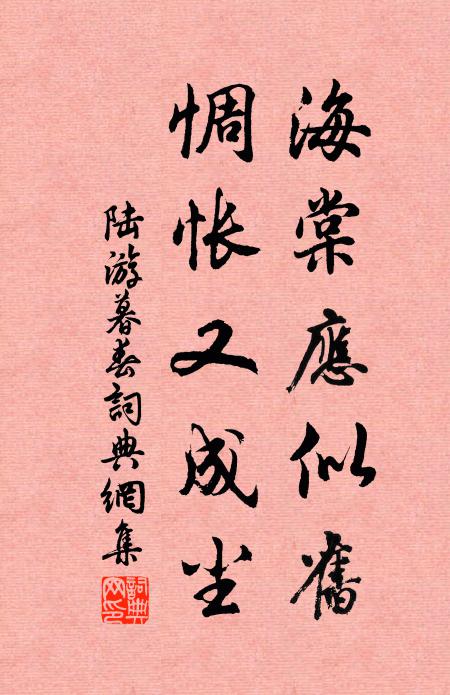 海棠應似舊
惆怅又成尘
陆游暮春詞典網集
詞典
网印